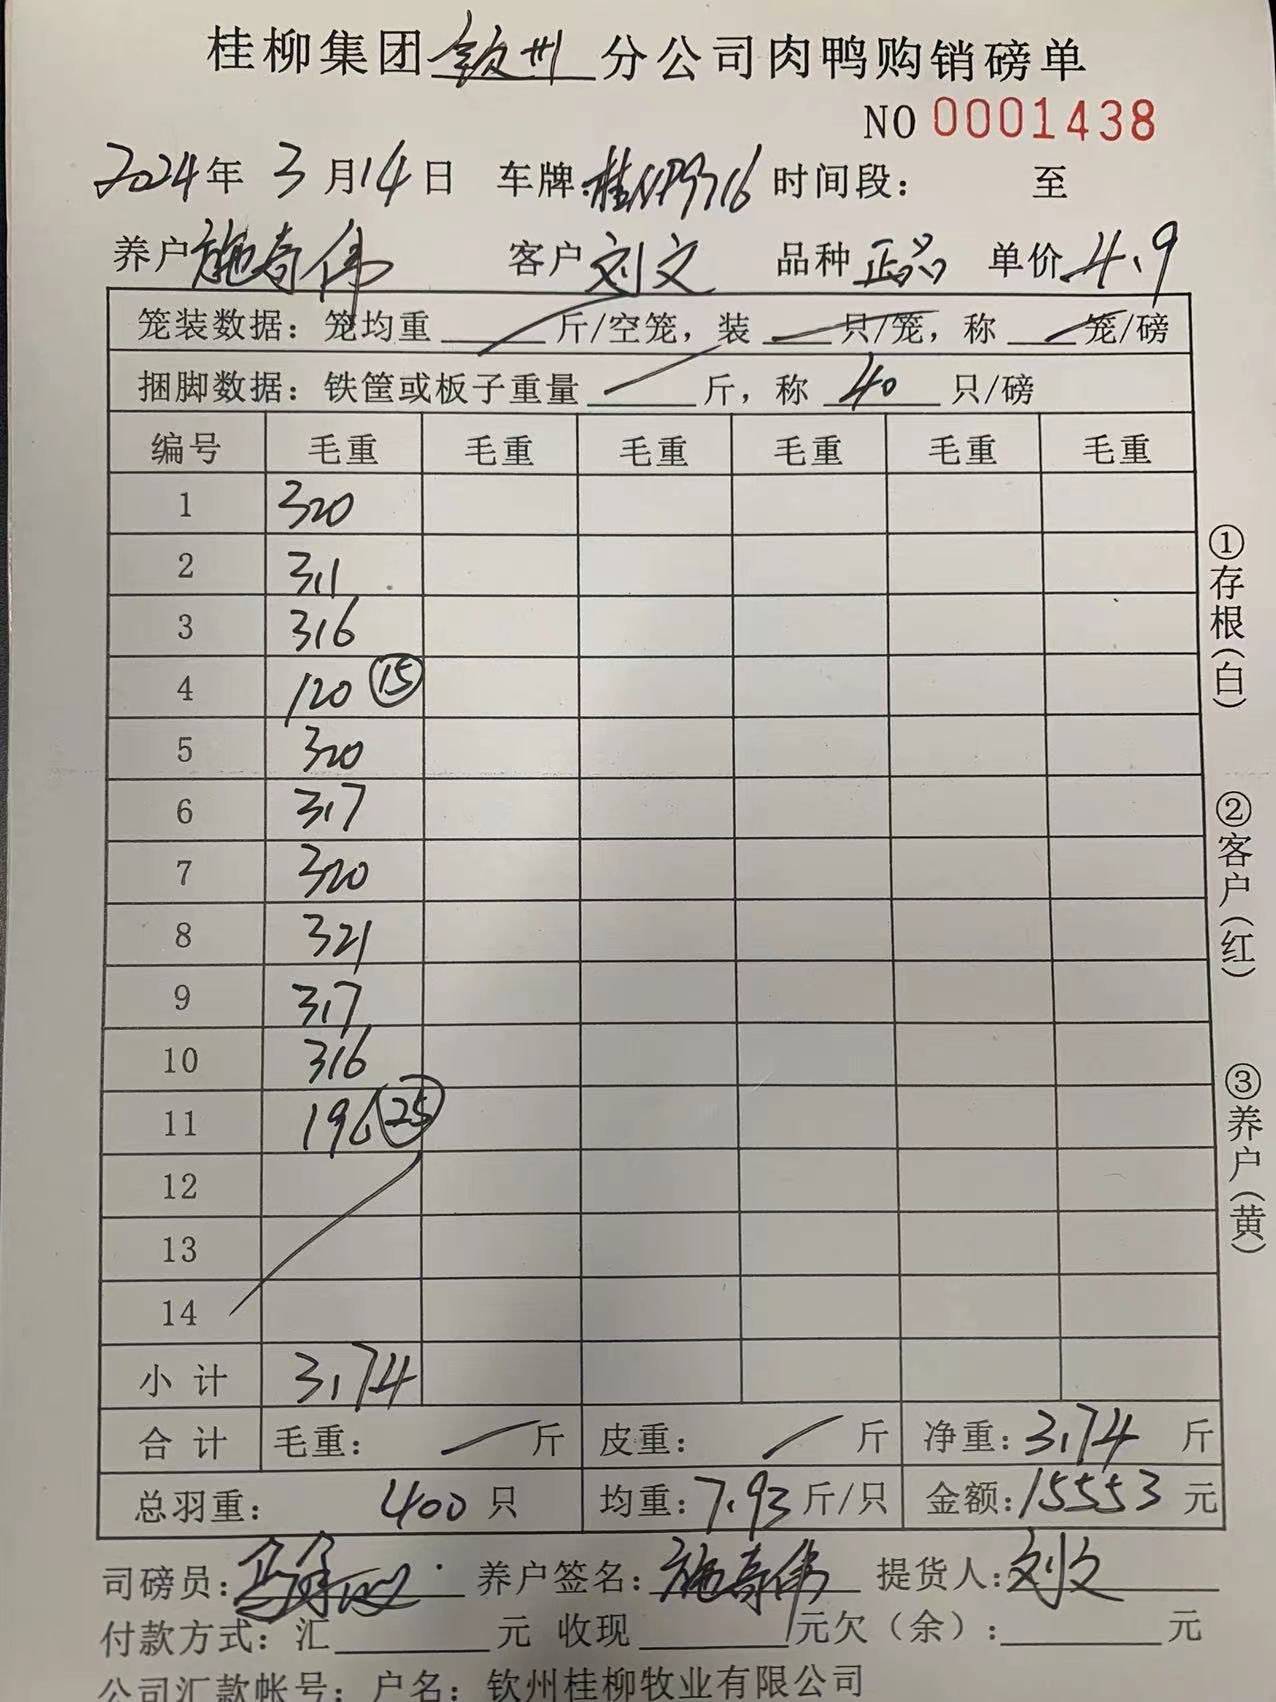 桂柳集团 钦州 分公司肉鸭购销磅单
NO 0001438
2024年 3月14日 车牌: 时间段: 至
养户 施寿伟 客户 刘文 品种 正品 单价 4.9
笼装数据: 笼均重 斤/空笼, 装 只/笼, 称 笼/磅
捆脚数据: 铁筐或板子重量 斤, 称 40 只/磅
编号 毛重 毛重 毛重 毛重 毛重 毛重
1 320
2 311
3 316
4 120 ⑮
5 320
6 317
7 320
8 321
9 317
10 316
11 196 ㉕
12
13
14
小计 3174
合计 毛重: 斤 皮重: 斤 净重: 3174 斤
总羽重: 400 只 均重: 7.93 斤/只 金额: 15553 元
司磅员: 养户签名: 施寿伟 提货人: 刘文
付款方式: 汇 元 收现 元欠(余): 元
公司汇款帐号: 户名: 钦州桂柳牧业有限公司
①存根(白)
②客户(红)
③养户(黄)